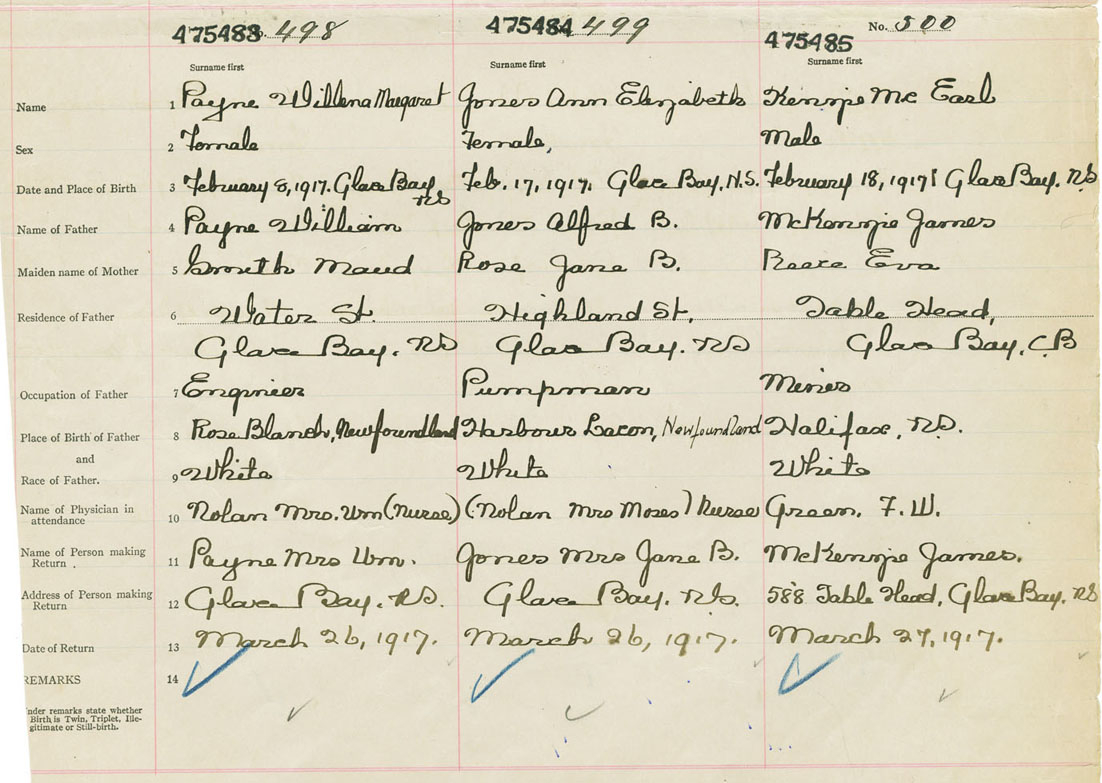 475483 498 475484 499 475485 No. 500
Surname first Surname first Surname first
Name 1 Payne Willena Margaret Jones Ann Elizabeth Kenzie Mc Earl
Sex 2 Female Female, Male
Date and Place of Birth 3 February 8, 1917. Glace Bay, NS Feb. 17, 1917. Glace Bay, N.S. February 18, 1917 Glace Bay. NS
Name of Father 4 Payne William Jones Alfred B. McKenzie James
Maiden name of Mother 5 Smith Maud Rose Jane B. Eva
Residence of Father 6 Water St. Highland St, Table Head,
Glace Bay. NS Glace Bay. NS Glace Bay, C.B
Occupation of Father 7 Engineer Pumpman Miner
Place of Birth of Father 8 Rose Blanch, Newfoundland Harbour Newfoundland Halifax, N.S.
and
Race of Father. 9 White White White
Name of Physician in attendance 10 Nolan Mrs. Wm (Nurse) (Nolan Mrs Moses) Nurse Green. F. W.
Name of Person making Return . 11 Payne Mrs Wm. Jones Mrs Jane B. McKenzie James.
Address of Person making Return 12 Glace Bay. N.S. Glace Bay. N.S. 588 Table Head, Glace Bay. NS
Date of Return 13 March 26, 1917. March 26, 1917. March 27, 1917.
REMARKS 14
nder remarks state whether
Birth is Twin, Triplet, Ille-
gitimate or Still-birth.